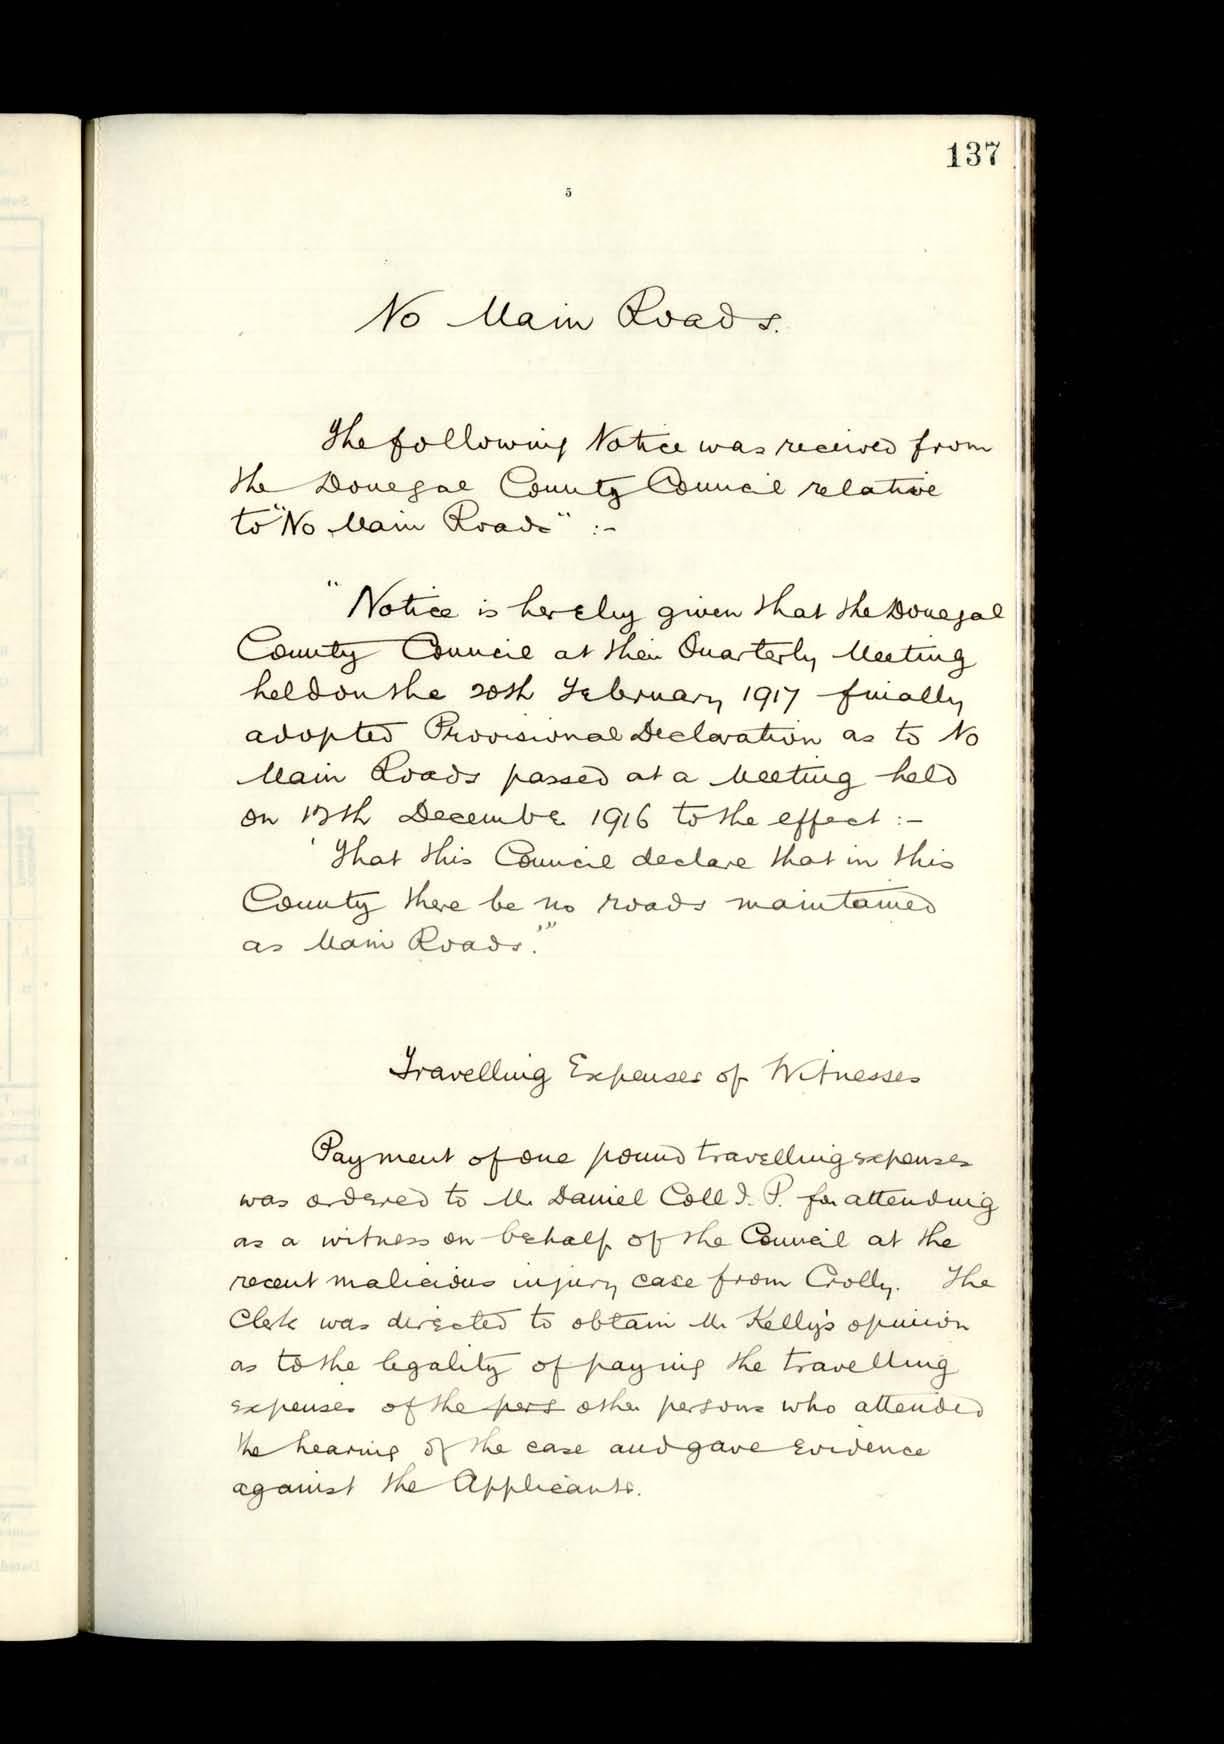 137
5
No Main Roads.
The following Notice was received from
the Donegal County Council relative
to "No Main Roads" :-
"Notice is hereby given that the Donegal
County Council at their Quarterly Meeting
held on the 20th February 1917 finally
adopted Provisional Declaration as to No
Main Roads passed at a Meeting held
on December 1916 to the effect :-
'That this Council declare that in this
County there be no roads maintained
as Main Roads.'"
Travelling Expenses of Witnesses
Payment of one pound travelling expenses
was ordered to Mr Daniel Coll J.P. for attending
as a witness on behalf of the Council at the
recent malicious injury case from Crolly. The
Clerk was directed to obtain Mr Kelly's opinion
as to the legality of paying the travelling
expenses of the pers other persons who attended
the hearing of the case and gave evidence
against the Applicants.